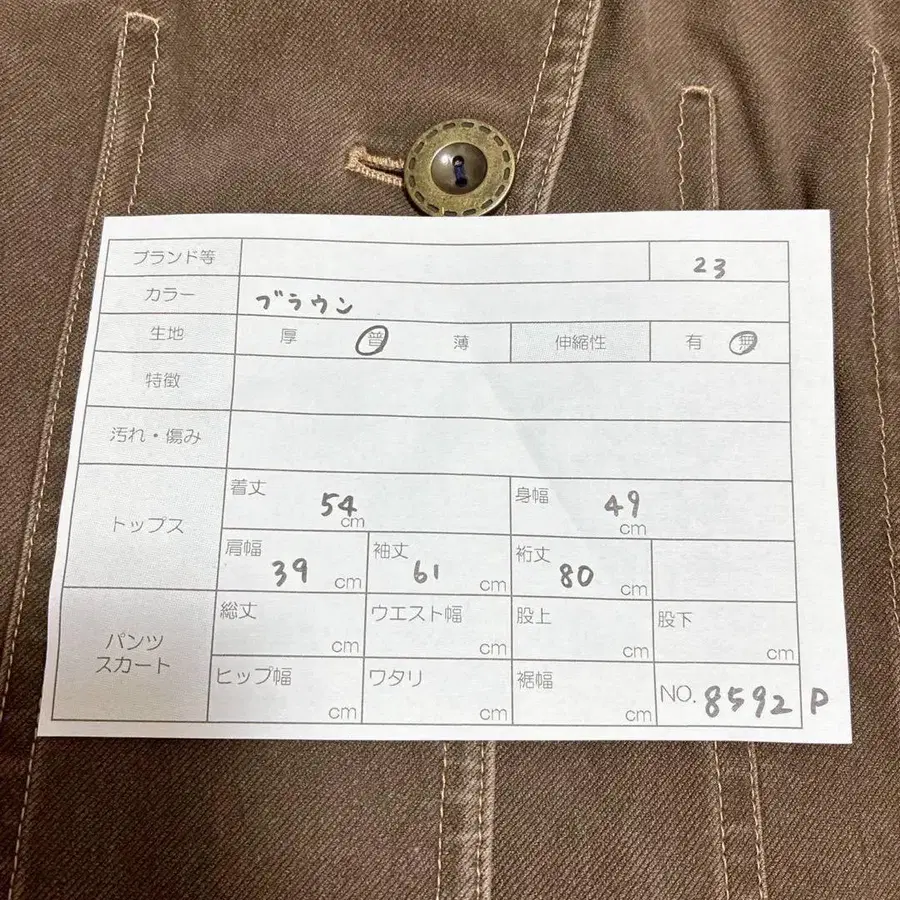 ブランド等 23
カラー ブラウン
生地 厚 普 薄 伸縮性 有 無
特徴
汚れ・傷み
トップス
着丈 54 cm 身幅 49 cm
肩幅 39 cm 袖丈 61 cm 裄丈 80 cm
パンツ
スカート
総丈 cm ウエスト幅 cm 股上 cm 股下 cm
ヒップ幅 cm ワタリ cm 裾幅 cm NO. 8592 P